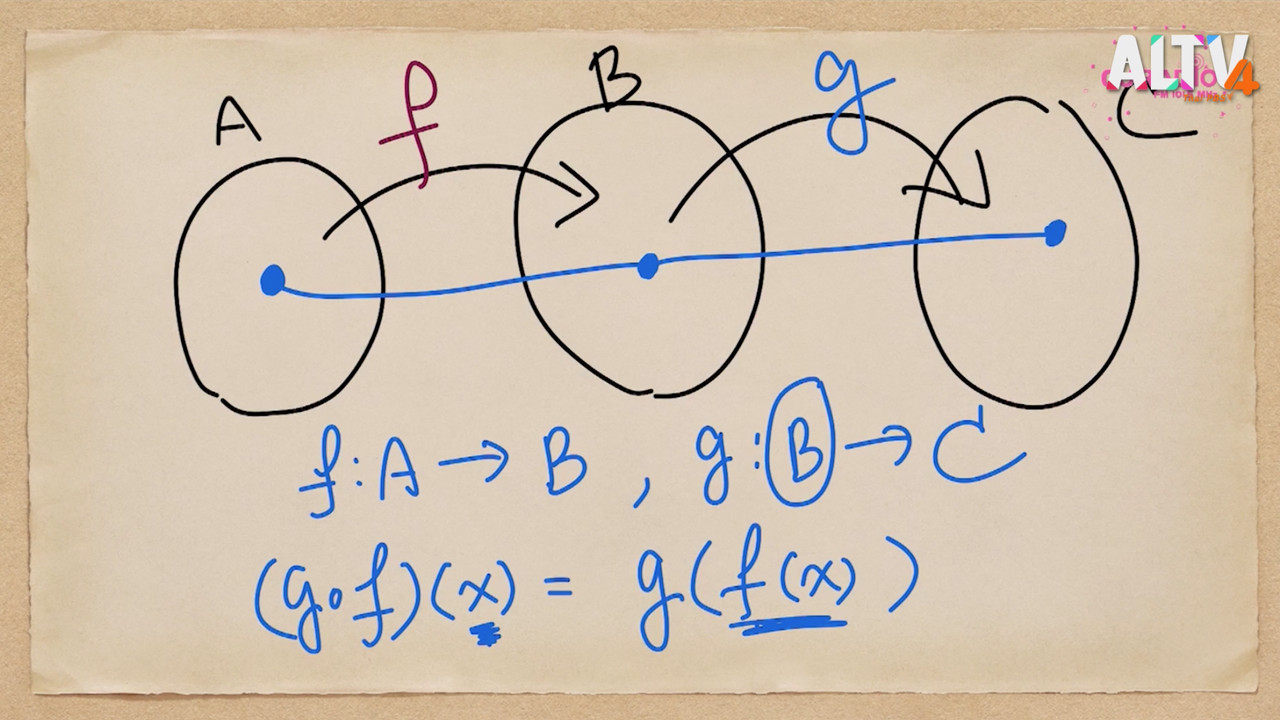 ALTV4
A f B g C
f : A → B , g : B → C
(g∘f)(x) = g(f(x))